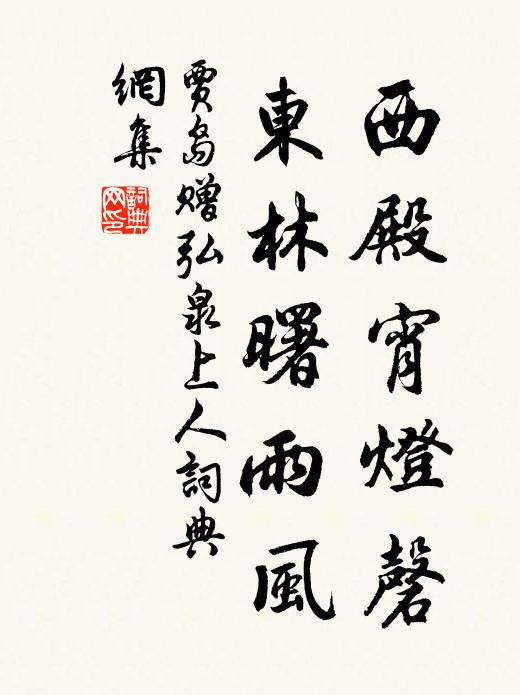 西殿宵燈磬
東林曙雨風
賈島贈弘泉上人詞典
網集
詞典網印